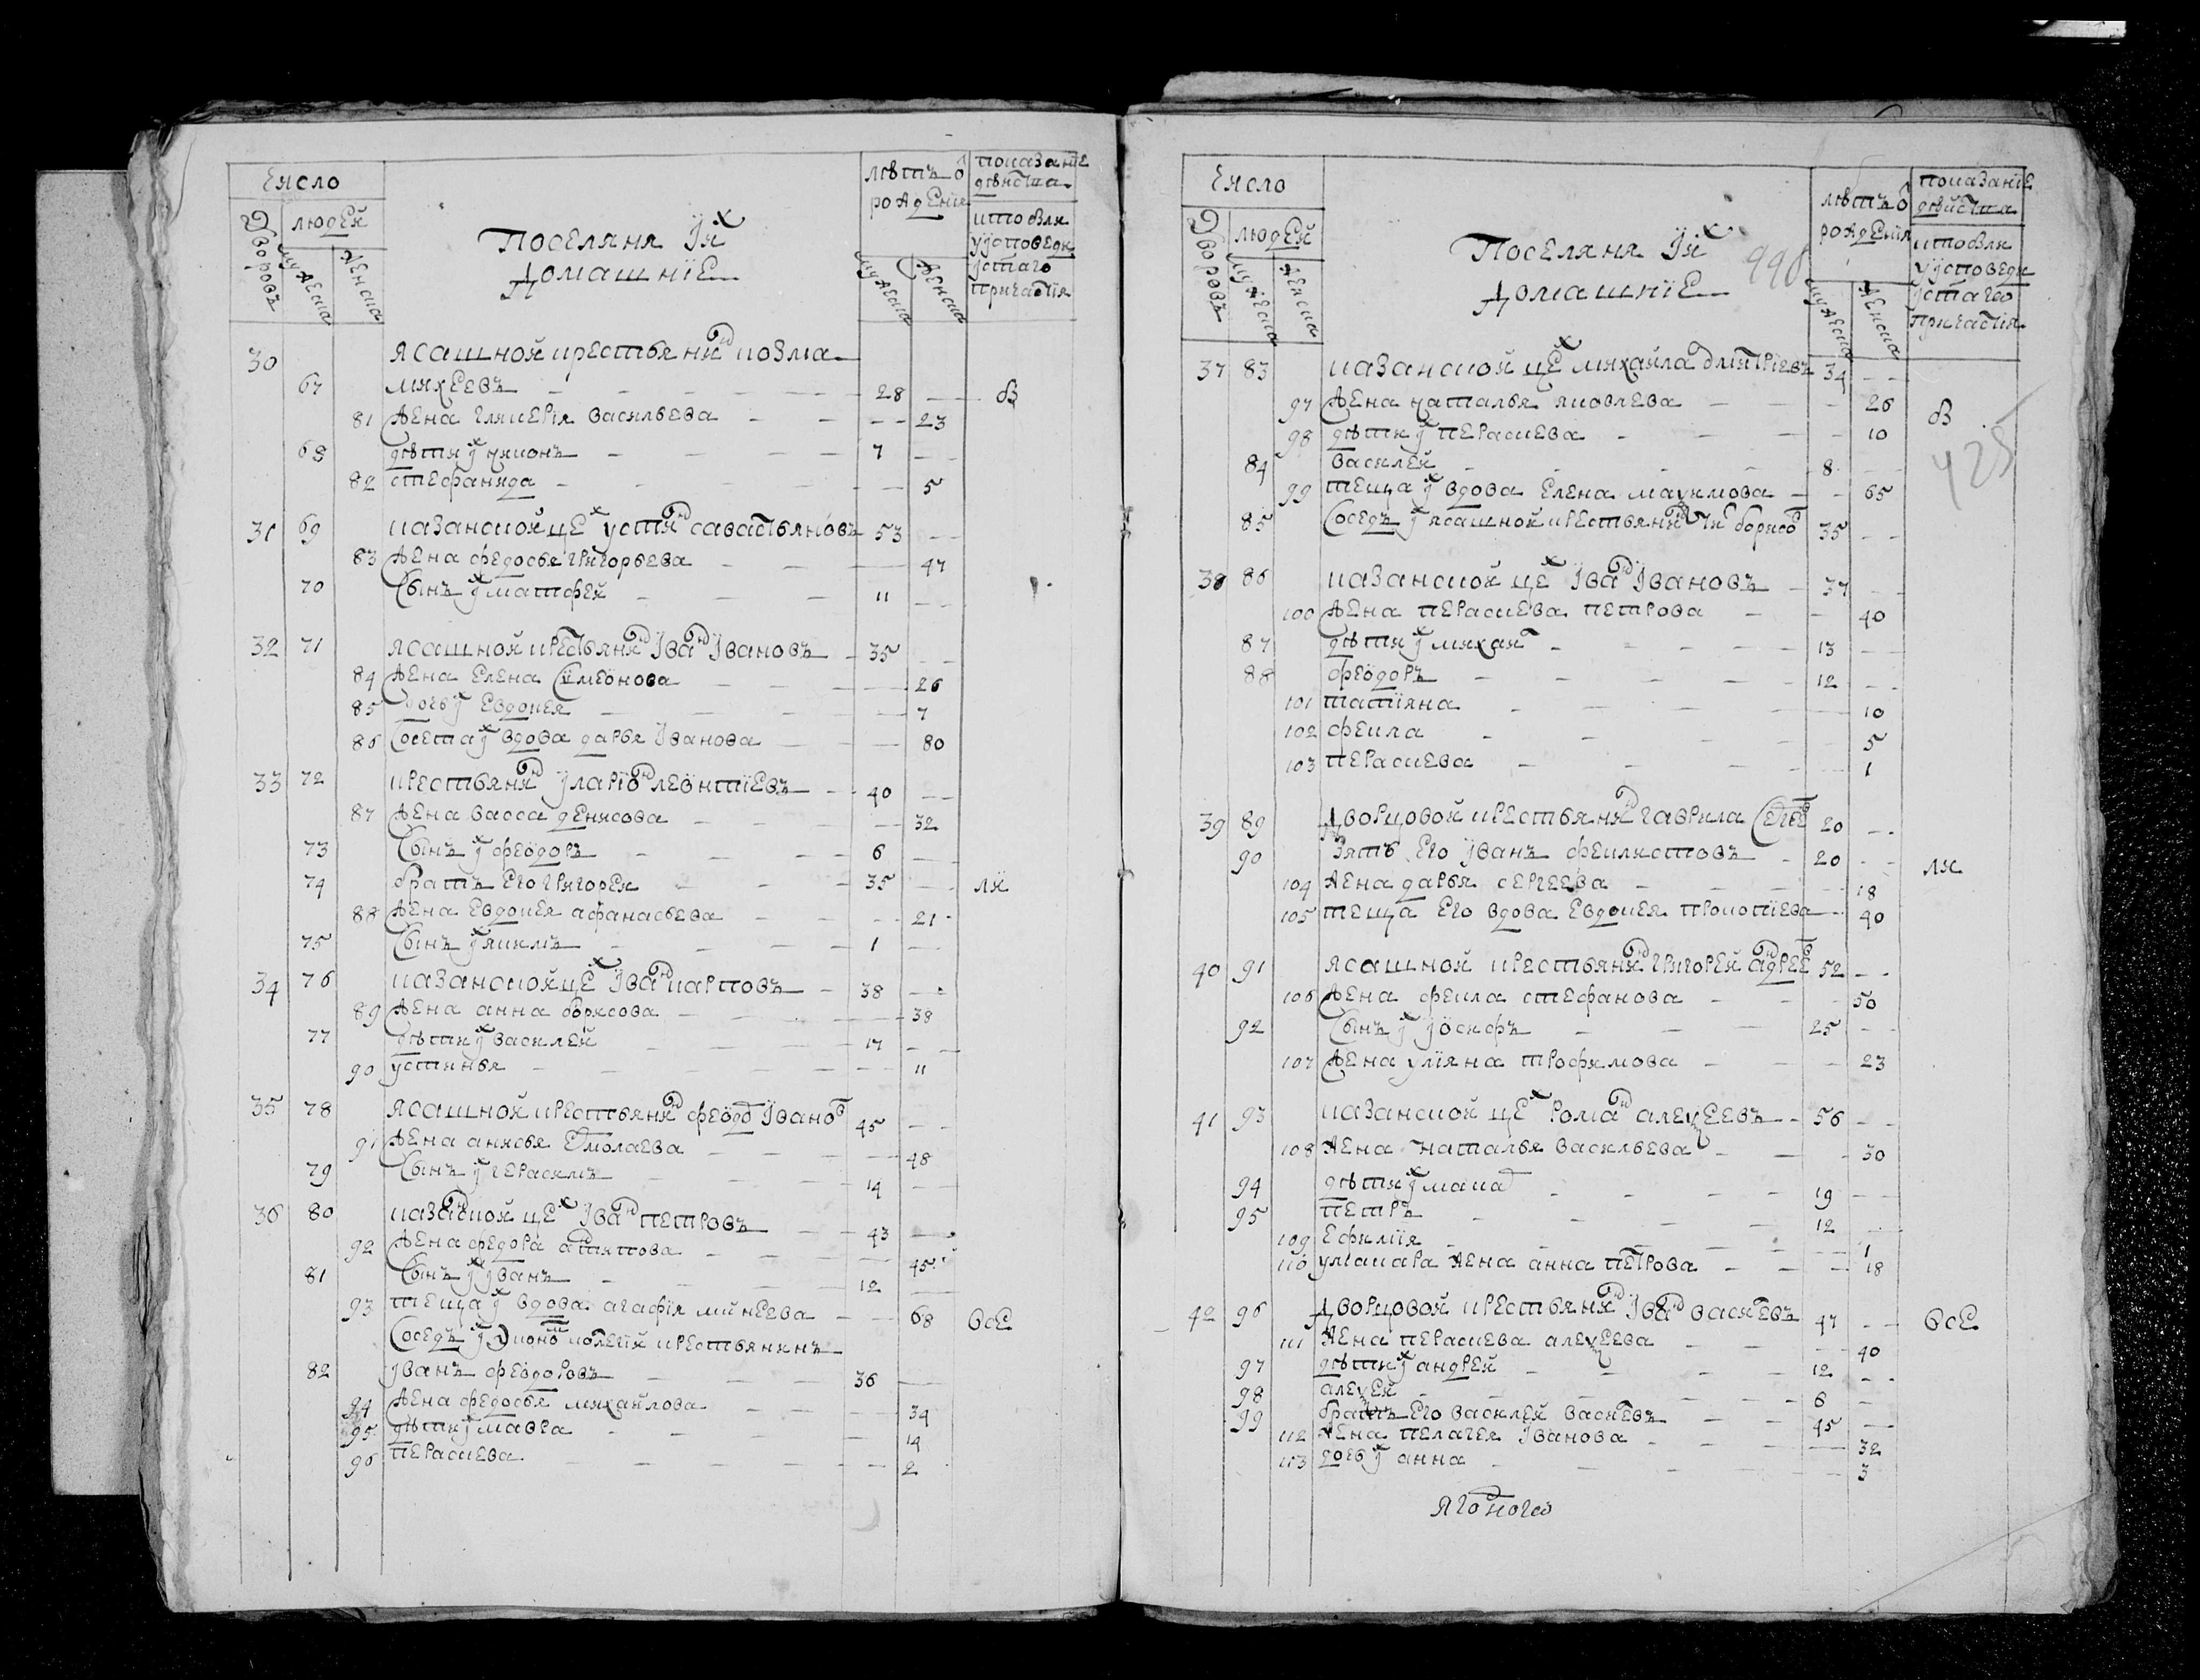 Число
Дворовъ
людей
мужеска
женска
Поселяня їх
домашнїе
лѣтъ ѿ
рождения
мужеска
женска
показанїе
дѣйства
кто были
у исповеди
і стаго
причастїя
30 ясашной крестьянинъ козма
67 михеевъ 28 в
81 жена гликерїя васильева 23
68 дѣти їх иионъ 7
82 стефанида 5
31 69 казанской цех устин савастьяновъ 53
83 жена федосья григорьева 47
70 сынъ їх матфей 11
32 71 ясашной крестьянин їван ївановъ 35
84 жена елена симеонова 26
85 дочь їх евдокея 7
86 соседка їх вдова дарья їванова 80
33 72 крестьянин їларїон леонтїевъ 40
87 жена васса денисова 32
73 сынъ їх феодоръ 6
74 братъ его григорей 35 ли
88 жена евдокея афанасьева 21
75 сынъ їх якимъ 1
34 76 казанской цех їван карповъ 38
89 жена анна борисова 38
77 дѣти їх василей 17
90 устинья 11
35 78 ясашной крестьянин феодор їванов 45
91 жена анисья ермолаева 48
79 сынъ їх герасимъ 14
36 80 казанской цех їван петровъ 43
92 жена федора антипова 45
81 сынъ їх їванъ 12
93 теща їх вдова агафїя минеева 68 все
соседъ їх економ колегїи крестьянинъ
82 їванъ феодоровъ 36
94 жена федосья михайлова 34
95 дѣти їх мавра 14
96 перасиева 2
Число
Дворовъ
людей
мужеска
женска
Поселяня їх
домашнїе
990
лѣтъ ѿ
рождения
мужеска
женска
показанїе
дѣйства
кто были
у исповеди
і стаго
причастїя
37 83 казанской цех михайла дмитрїевъ 34
97 жена наталья яковлева 26 в
98 дѣти їх перасиева 10
425
84 василей 8
99 теща їх вдова елена маѯимова 65
85 соседъ їх ясашной крестьянин борисов 35
38 86 казанской цех їван ївановъ 37
100 жена перасиева петрова 40
87 дѣти їх михаил 13
88 феодоръ 12
101 татїяна 10
102 фекла 5
103 перасиева 1
39 89 дворцовой крестьянин гаврила сергеев 20
90 зять его їванъ феклистовъ 20 ли
104 жена дарья сергеева 18
105 теща его вдова евдокея прокопїева 40
40 91 ясашной крестьянин григорей андреев 52
106 жена фекла стефанова 50
92 сынъ їх їосифъ 25
107 жена улїяна трофимова 23
41 93 казанской цех роман алеѯеевъ 56
108 жена наталья васильева 30
94 дѣти їх макар 19
95 петръ 12
109 ефимїя 1
110 у макара жена анна петрова 18
42 96 дворцовой крестьянин їван васильевъ 47 все
111 жена перасиева алеѯеева 40
97 дѣти їх андрей 12
98 алеѯей 6
99 братъ его василей васильевъ 45
112 жена пелагея їванова 32
113 дочь їх анна 3
ягодного